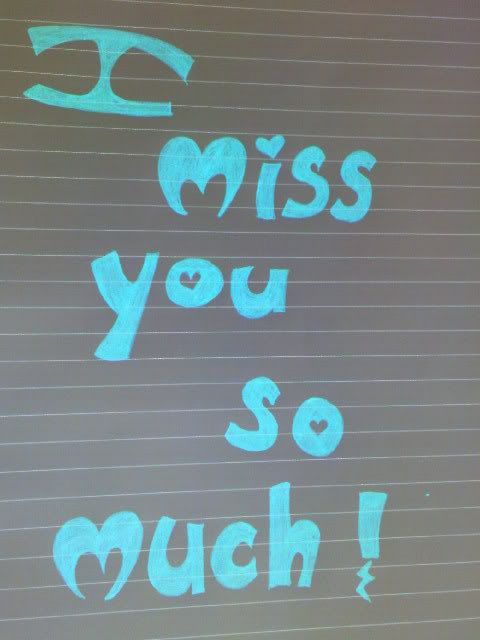 I
miss
you
so
much!